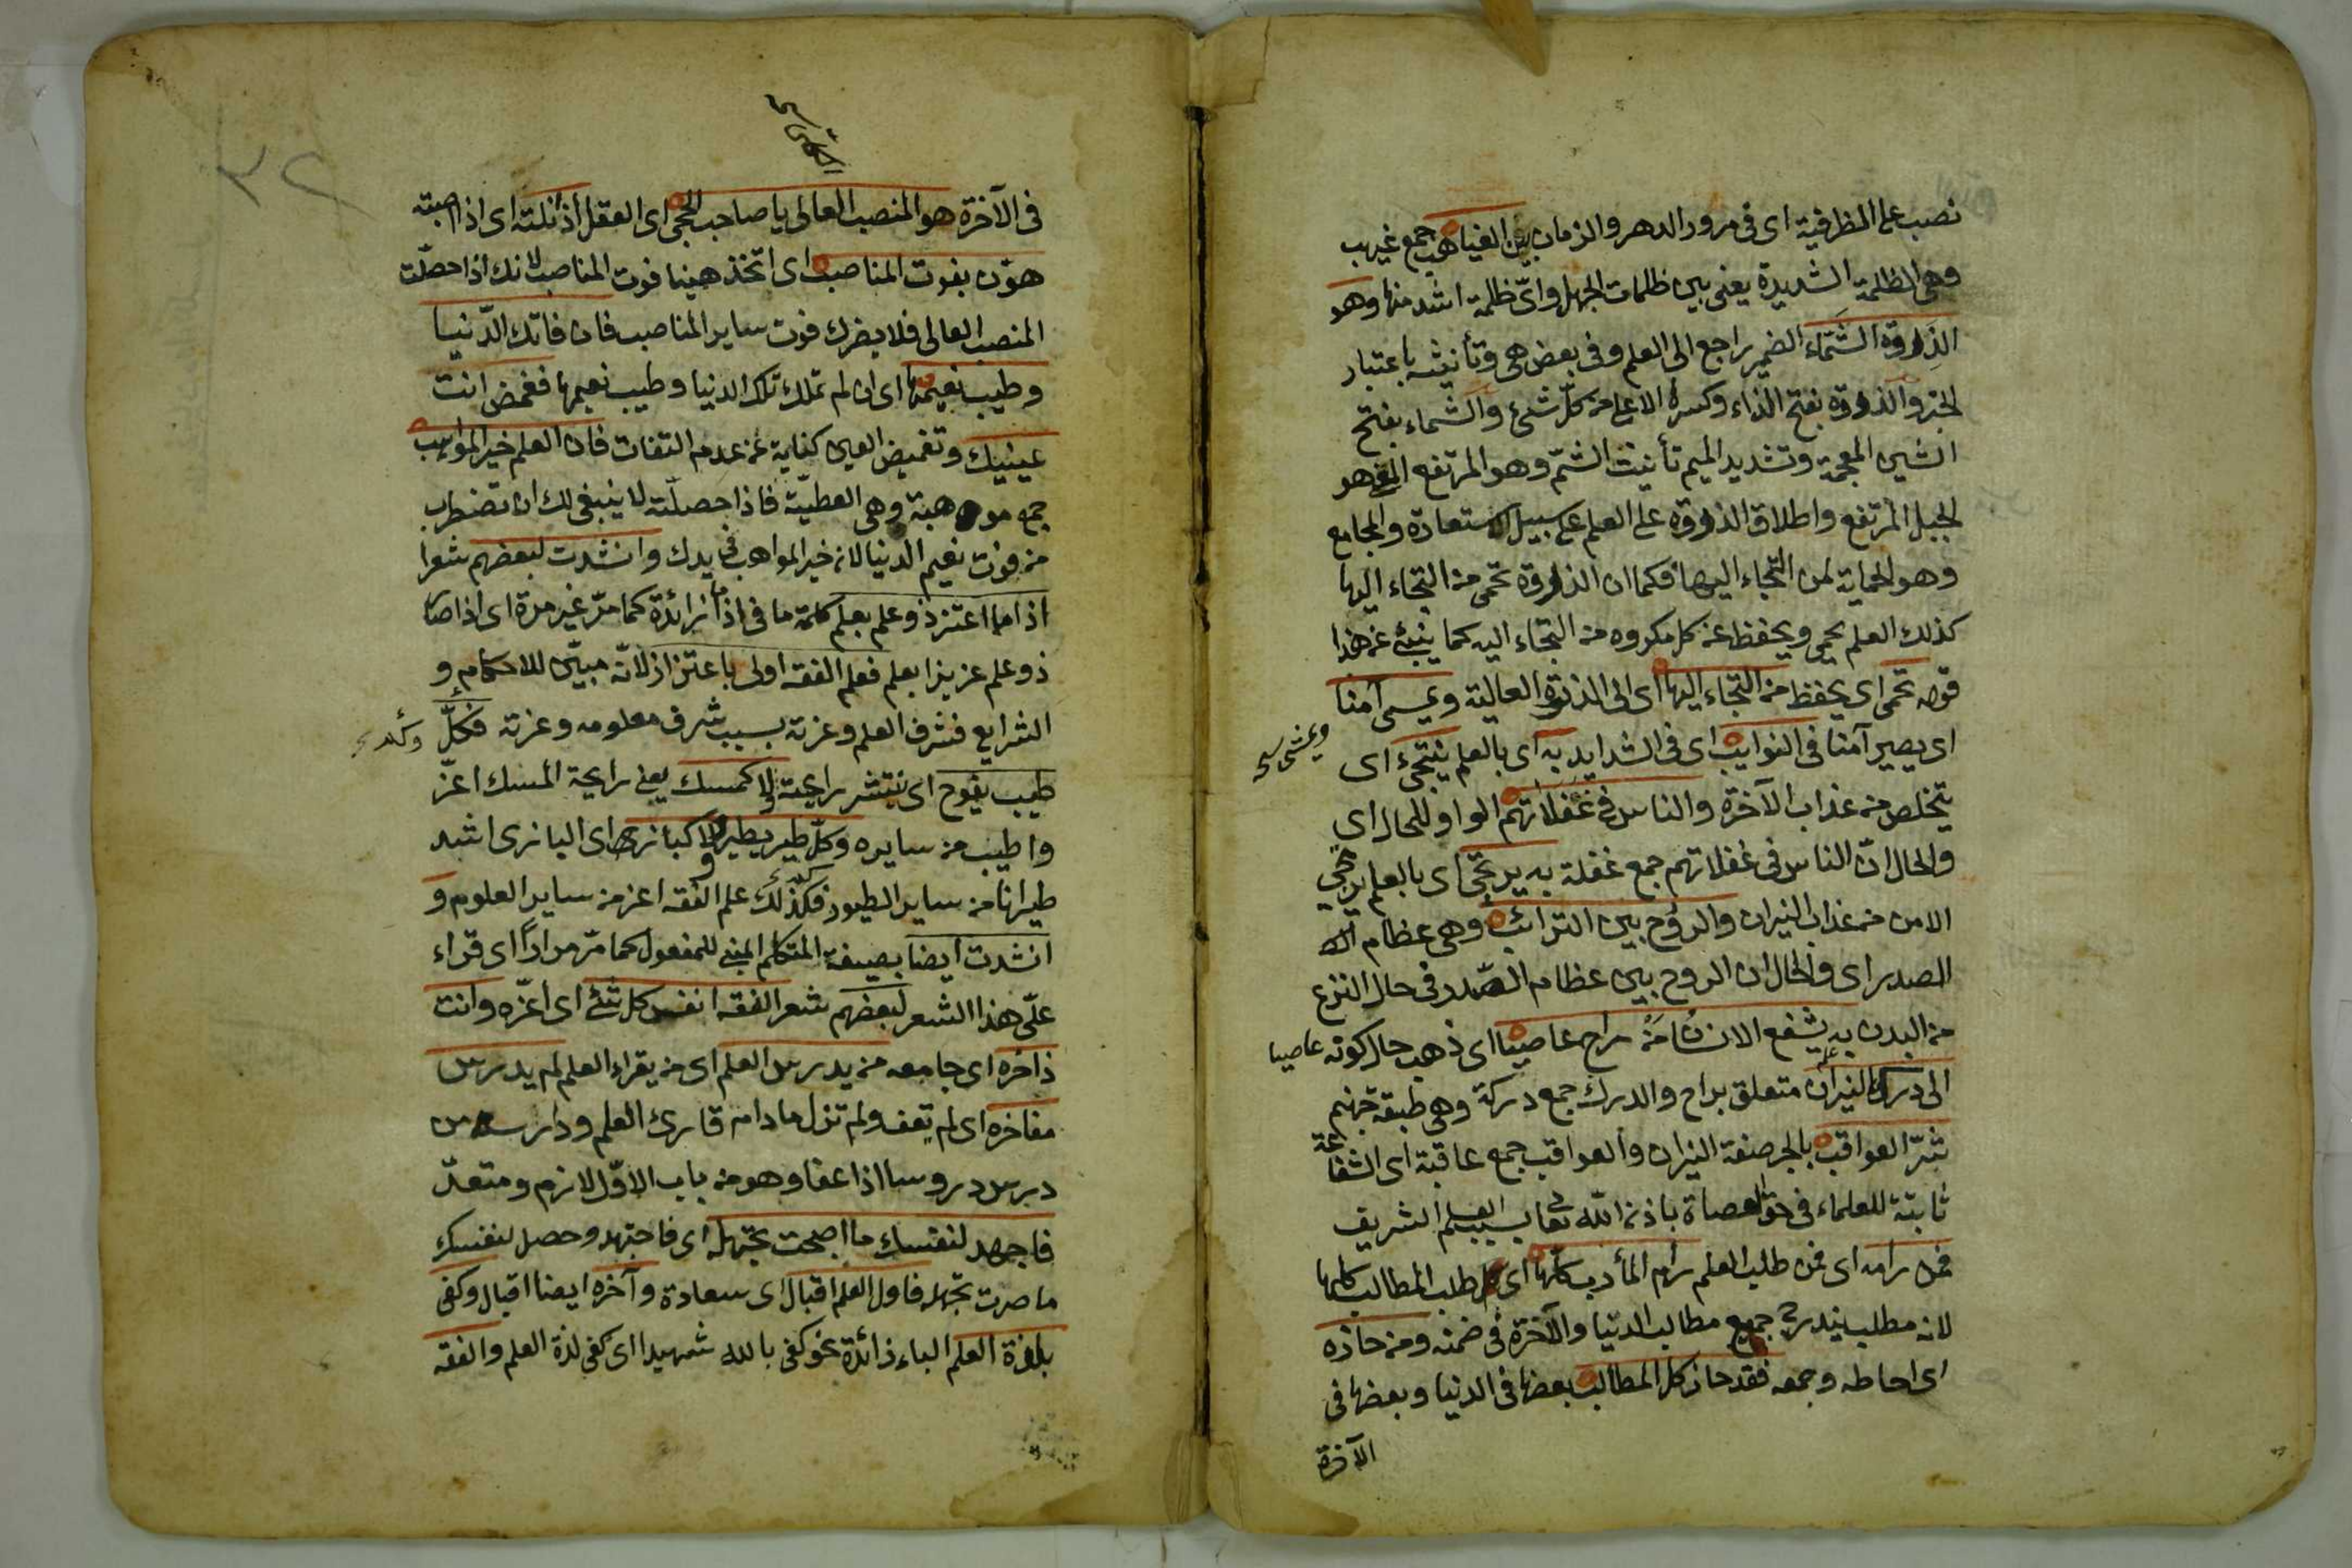 نصب على الظرفية اى فى مرور الدهر والزمان بين الغياهب جمع غيهب
وهى الظلمة الشديدة يعنى بين ظلمات الجهل واىّ ظلمة اشد منها وهو
الذروة الشمّاء الضمير راجع الى العلم وفى بعض هى وتأنيثه باعتبار
الخبر والذروة بفتح الذاء وكسرها الاعلى من كلّ شئ والشماء بفتح
الشين المعجمة وتشديد الميم تأنيث الشمّ وهو المرتفع هو
الجبل المرتفع واطلاق الذروة على العلم على سبيل الاستعادة والجامع
وهو الحماية لمن التجاء اليها فكما ان الذروة تحمى من التجاء اليها
كذلك العلم يحمى ويحفظ عن كل مكروه من التجاء اليه كما ينبئ عن هذا
قوله تحمى اى يحفظ من التجاء اليها اى الى الذروة العالية ويمسى آمنا
ويمشى
اى يصير آمنا فى النوايب اى فى الشدايد به اى بالعلم ينتجى اى
يتخلص من عذاب الآخرة والناس فى غفلاتهم الواو للحال اى
والحال انّ الناس فى غفلاتهم جمع غفلة به يرتجى اى بالعلم يرتجى
الامن من عذاب النيران والروح بين الترائب وهى عظام
الصدر اى والحال ان الروح بين عظام الصدر فى حال النزع
من البدن به يشفع الانسان من راح عاصيا اى ذهب حال كونه عاصيا
الى درك النيران متعلق براح والدرك جمع دركة وهى طبقة جهنم
شرّ العواقب بالجر صفة النيران والعواقب جمع عاقبة اى الشفاعة
ثابتة للعلماء فى حق العصاة باذن الله تعالى بسبب العلم الشريف
فمن رامه اى فمن طلب العلم رام المأرب كلها اى طلب المطالب كلها
لانه مطلب يندرج جميع مطالب الدنيا والآخرة فى ضمنه ومن حازه
اى احاطه وجمعه فقد حاز كل المطالب بعضها فى الدنيا وبعضها فى
الآخرة
٣٢
فى الآخرة هو المنصب العالى يا صاحب الحجى اى العقل اذ انلته اى اذا اصبته
هوّن بفوت المناصب اى اتخذ هينا فوت المناصب لانك اذا حصلّت
المنصب العالى فلا يضرك فوت ساير المناصب فان فاتك الدّنيا
وطيب نعيمها اى ان لم تملك تلك الدنيا وطيب نعيمها فغمض انت
عينيك وتغميض العين كناية عن عدم التفات فان العلم خير المواهب
جمع موهبة وهى العطيّة فاذا حصلّته لا ينبغى لك ان تضطرب
من فوت نعيم الدنيا لانه خير المواهب فى يدك وانشدت لبعضهم شعرا
اذا ما اعتز ذو علم بعلم كلمة ما فى اذا ما زائدة كما مرّ غير مرة اى اذا صار
ذو علم عزيزا بعلم فعلم الفقه اولى باعتزاز لانّه مبيّن للاحكام و
الشرايع فشرف العلم وعزته بسبب شرف معلومه وعزته فكلّ
طيب يفوح اى ينتشر رايحته ولا كمسك يعنى رايحة المسك اعزّ
واطيب من سايره وكلّ طير يطير ولا كبازى اى البازى اشد
طيرانا من ساير الطيور فكذلك علم الفقه اعز من ساير العلوم و
انشدت ايضا بصيغة المتكلم المبنى للمفعول كما مرّ مرارًا اى قراء
علّى هذا الشعر لبعضهم شعر الفقه انفس كل شئ اى اعزّه وانت
ذاخره اى جامعه من يدرس العلم اى من يقراء العلم لم يدرس
مفاخره اى لم يعف ولم تزل مادام قارئ العلم ودارسه من
درس دروسا اذا عفا وهو من باب الاوّل لازم ومتعدّ
فاجهد لنفسك ما اصبحت تجهله اى فاجتهد وحصل لنفسك
ما صرت تجهله فاول العلم اقبال اى سعادة وآخره ايضا اقبال وكفى
بلذة العلم الباء زائدة نحو كفى بالله شهيدا اى كفى لذة العلم والفقه